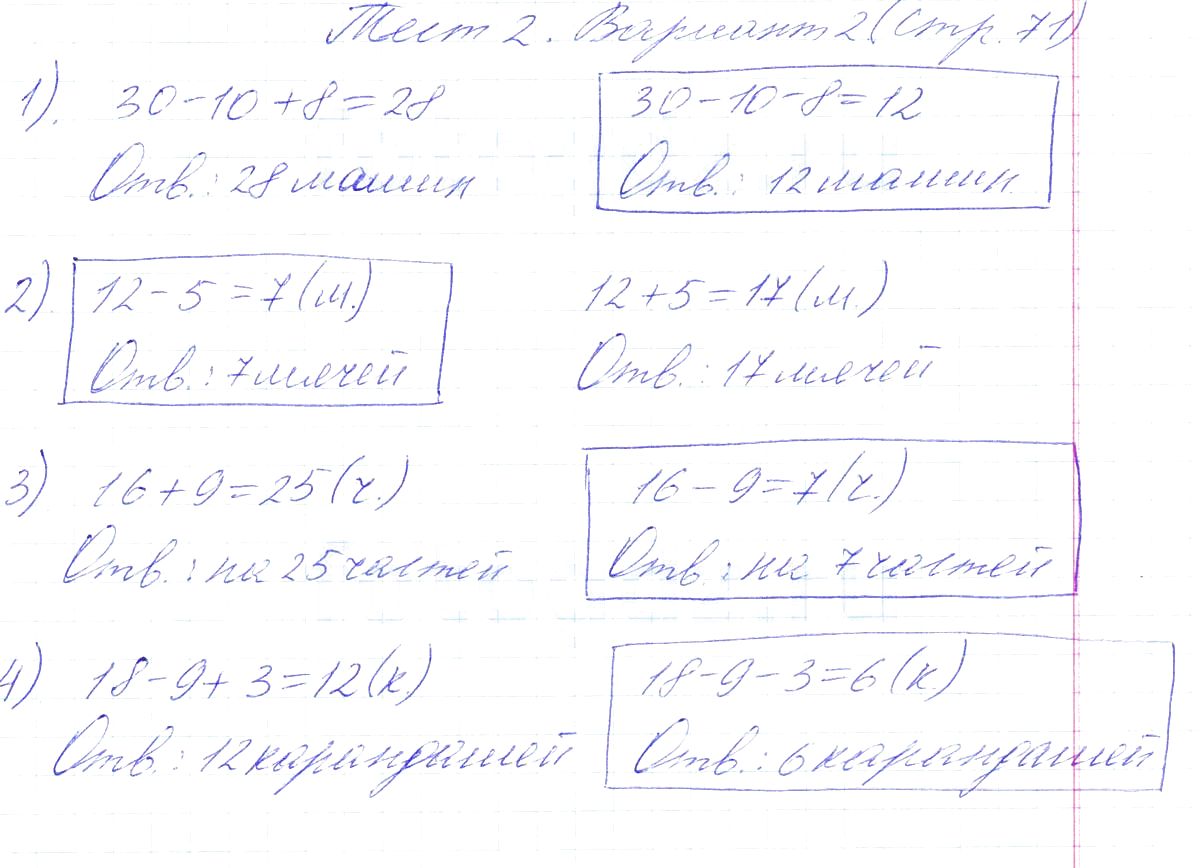 Тест 2. Вариант 2 (стр. 71)
1). 30-10+8=28 30-10-8=12
Отв.: 28 машин Отв.: 12 машин
2). 12-5=7(м.) 12+5=17(м.)
Отв.: 7 мячей Отв.: 17 мячей
3) 16+9=25(ч.) 16-9=7(ч.)
Отв.: на 25 частей Отв.: на 7 частей
4) 18-9+3=12(к.) 18-9-3=6(к.)
Отв.: 12 карандашей Отв.: 6 карандашей